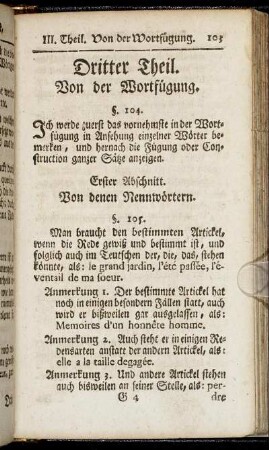 III. Theil. Von der Wortfügung. 103
Dritter Theil.
Von der Wortfügung.
§. 104.
Ich werde zuerst das vornehmste in der Wort-
fügung in Ansehung einzelner Wörter be-
merken, und hernach die Fügung oder Con-
struction ganzer Sätze anzeigen.
Erster Abschnitt.
Von denen Nennwörtern.
§. 105.
Man braucht den bestimmten Artickel,
wenn die Rede gewiß und bestimmt ist, und
folglich auch im Teutschen der, die, das, stehen
könnte, als: le grand jardin, l'été passée, l'é-
ventail de ma soeur.
Anmerkung 1. Der bestimmte Artickel hat
noch in einigen besondern Fällen statt, auch
wird er bißweilen gar ausgelassen, als:
Memoires d'un honnête homme.
Anmerkung 2. Auch steht er in einigen Re-
densarten anstatt der andern Artickel, als:
elle a la taille degagée.
Anmerkung 3. Und andere Artickel stehen
auch bisweilen an seiner Stelle, als: per-
G 4 dre